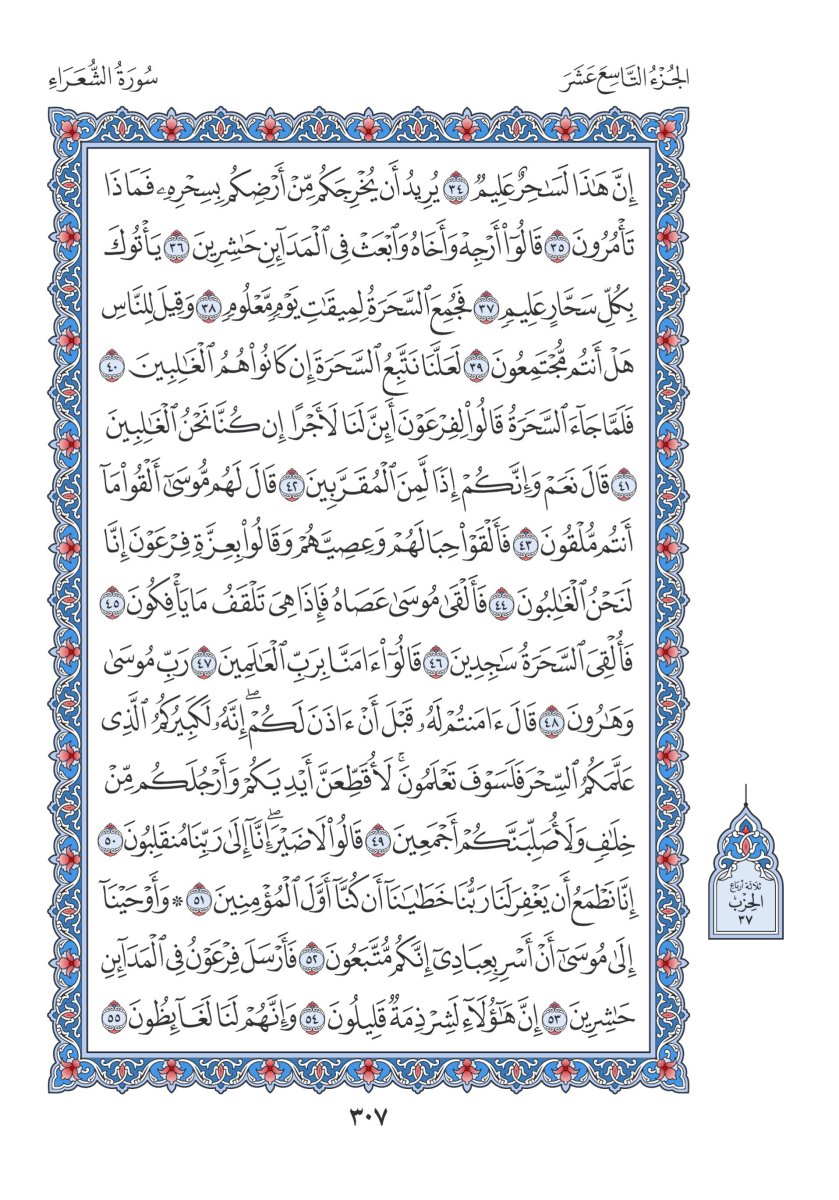 الجُزْءُ التَّاسِعَ عَشَرَ
سُورَةُ الشُّعَرَاءِ
إِنَّ هَٰذَا لَسَٰحِرٌ عَلِيمٌ ٣٤ يُرِيدُ أَن يُخْرِجَكُم مِّنْ أَرْضِكُم بِسِحْرِهِۦ فَمَاذَا
تَأْمُرُونَ ٣٥ قَالُوٓاْ أَرْجِهْ وَأَخَاهُ وَٱبْعَثْ فِي ٱلْمَدَآئِنِ حَٰشِرِينَ ٣٦ يَأْتُوكَ
بِكُلِّ سَحَّارٍ عَلِيمٍ ٣٧ فَجُمِعَ ٱلسَّحَرَةُ لِمِيقَٰتِ يَوْمٍ مَّعْلُومٍ ٣٨ وَقِيلَ لِلنَّاسِ
هَلْ أَنتُم مُّجْتَمِعُونَ ٣٩ لَعَلَّنَا نَتَّبِعُ ٱلسَّحَرَةَ إِن كَانُواْ هُمُ ٱلْغَٰلِبِينَ ٤٠
فَلَمَّا جَآءَ ٱلسَّحَرَةُ قَالُواْ لِفِرْعَوْنَ أَئِنَّ لَنَا لَأَجْرًا إِن كُنَّا نَحْنُ ٱلْغَٰلِبِينَ
٤١ قَالَ نَعَمْ وَإِنَّكُمْ إِذًا لَّمِنَ ٱلْمُقَرَّبِينَ ٤٢ قَالَ لَهُم مُّوسَىٰٓ أَلْقُواْ مَآ
أَنتُم مُّلْقُونَ ٤٣ فَأَلْقَوْاْ حِبَالَهُمْ وَعِصِيَّهُمْ وَقَالُواْ بِعِزَّةِ فِرْعَوْنَ إِنَّا
لَنَحْنُ ٱلْغَٰلِبُونَ ٤٤ فَأَلْقَىٰ مُوسَىٰ عَصَاهُ فَإِذَا هِيَ تَلْقَفُ مَا يَأْفِكُونَ ٤٥
فَأُلْقِيَ ٱلسَّحَرَةُ سَٰجِدِينَ ٤٦ قَالُوٓاْ ءَامَنَّا بِرَبِّ ٱلْعَٰلَمِينَ ٤٧ رَبِّ مُوسَىٰ
وَهَٰرُونَ ٤٨ قَالَ ءَامَنتُمْ لَهُۥ قَبْلَ أَنْ ءَاذَنَ لَكُمْۖ إِنَّهُۥ لَكَبِيرُكُمُ ٱلَّذِي
عَلَّمَكُمُ ٱلسِّحْرَ فَلَسَوْفَ تَعْلَمُونَۚ لَأُقَطِّعَنَّ أَيْدِيَكُمْ وَأَرْجُلَكُم مِّنْ
خِلَٰفٍ وَلَأُصَلِّبَنَّكُمْ أَجْمَعِينَ ٤٩ قَالُواْ لَا ضَيْرَۖ إِنَّآ إِلَىٰ رَبِّنَا مُنقَلِبُونَ ٥٠
إِنَّا نَطْمَعُ أَن يَغْفِرَ لَنَا رَبُّنَا خَطَٰيَٰنَآ أَن كُنَّآ أَوَّلَ ٱلْمُؤْمِنِينَ ٥١ * وَأَوْحَيْنَآ
إِلَىٰ مُوسَىٰٓ أَنْ أَسْرِ بِعِبَادِيٓ إِنَّكُم مُّتَّبَعُونَ ٥٢ فَأَرْسَلَ فِرْعَوْنُ فِي ٱلْمَدَآئِنِ
حَٰشِرِينَ ٥٣ إِنَّ هَٰٓؤُلَآءِ لَشِرْذِمَةٌ قَلِيلُونَ ٥٤ وَإِنَّهُمْ لَنَا لَغَآئِظُونَ ٥٥
ثلاثة أرباع
الحِزْب
٣٧
٣٠٧